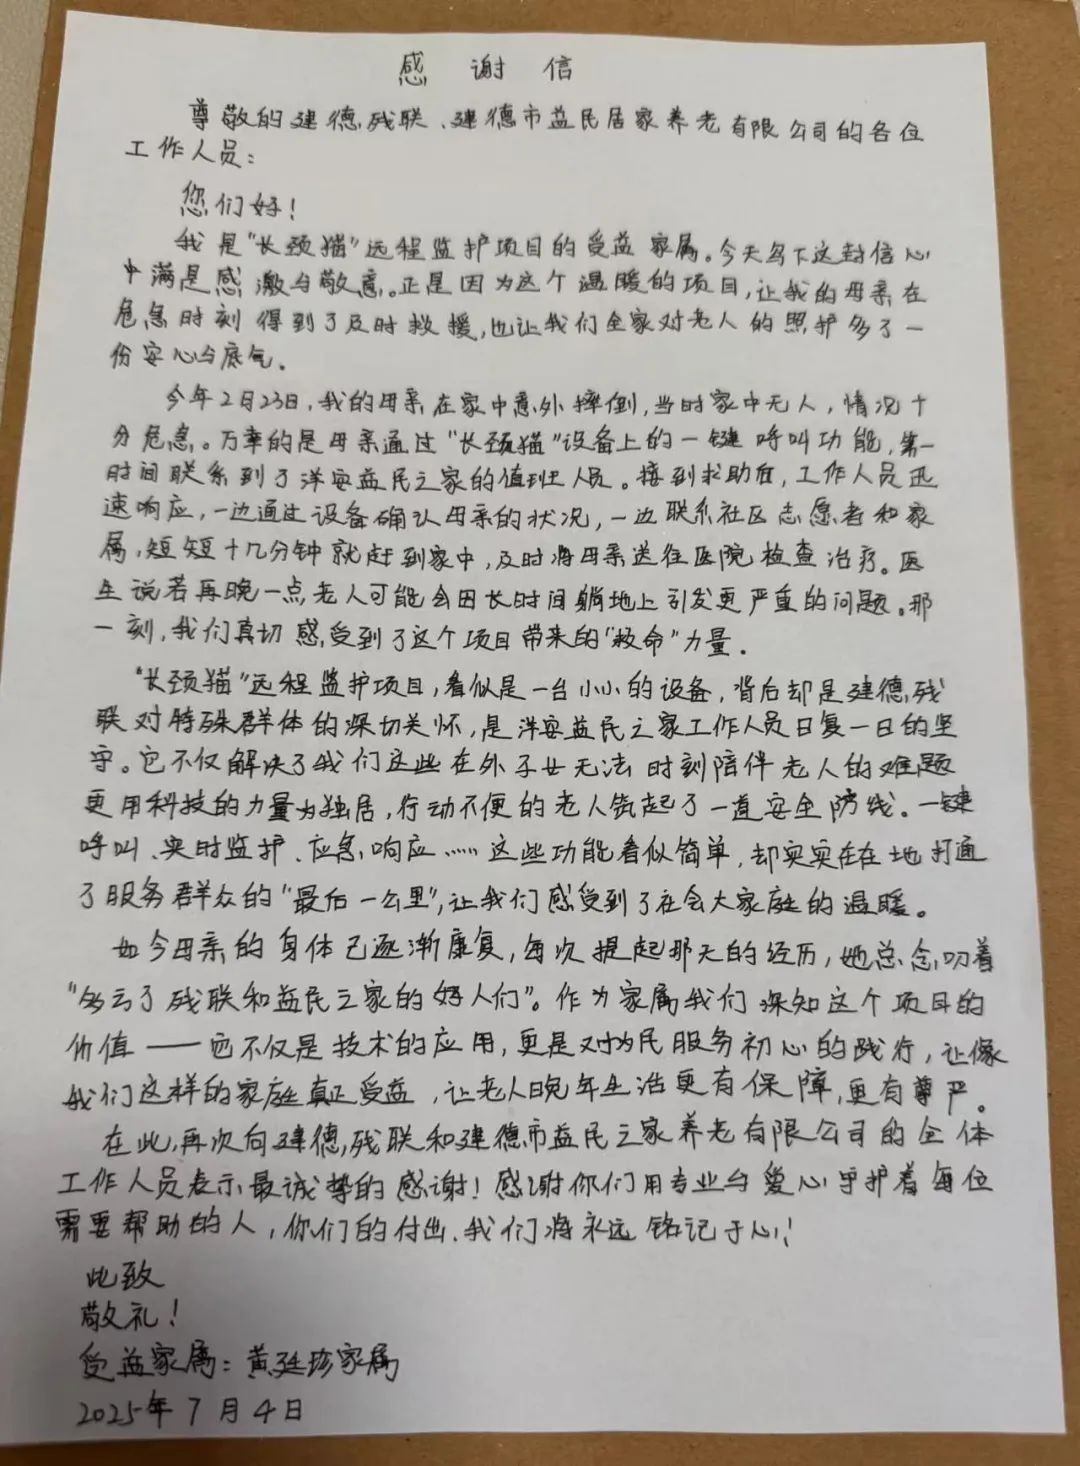 感谢信
尊敬的建德残联、建德市益民居家养老有限公司的各位
工作人员：
您们好！
我是“长颈猫”远程监护项目的受益家属。今天写下这封信心
中满是感激与敬意。正是因为这个温暖的项目，让我的母亲在
危急时刻得到了及时救援，也让我们全家对老人的照护多了一
份安心与底气。
今年2月23日，我的母亲在家中意外摔倒，当时家中无人，情况十
分危急。万幸的是母亲通过“长颈猫”设备上的一键呼叫功能，第一
时间联系到了洋安益民之家的值班人员。接到求助后，工作人员迅
速响应，一边通过设备确认母亲的状况，一边联系社区志愿者和家
属，短短十几分钟就赶到家中，及时将母亲送往医院检查治疗。医
生说若再晚一点老人可能会因长时间躺地上引发更严重的问题。那
一刻，我们真切感受到了这个项目带来的“救命”力量。
“长颈猫”远程监护项目，看似是一台小小的设备，背后却是建德残
联对特殊群体的深切关怀，是洋安益民之家工作人员日复一日的坚
守。它不仅解决了我们这些在外子女无法时刻陪伴老人的难题
更用科技的力量为独居，行动不便的老人筑起了一道安全防线。一键
呼叫、实时监护、应急响应……这些功能看似简单，却实实在在地打通
了服务群众的“最后一公里”，让我们感受到了社会大家庭的温暖。
如今母亲的身体已逐渐康复，每次提起那天的经历，她总念叨着
“多亏了残联和益民之家的好人们”。作为家属我们深知这个项目的
价值——它不仅是技术的应用，更是对为民服务初心的践行，让像
我们这样的家庭真正受益，让老人晚年生活更有保障，更有尊严。
在此，再次向建德残联和建德市益民之家养老有限公司的全体
工作人员表示最诚挚的感谢！感谢你们用专业与爱心守护着每位
需要帮助的人，你们的付出、我们将永远铭记于心！
此致
敬礼！
受益家属：黄廷珍家属
2025年7月4日